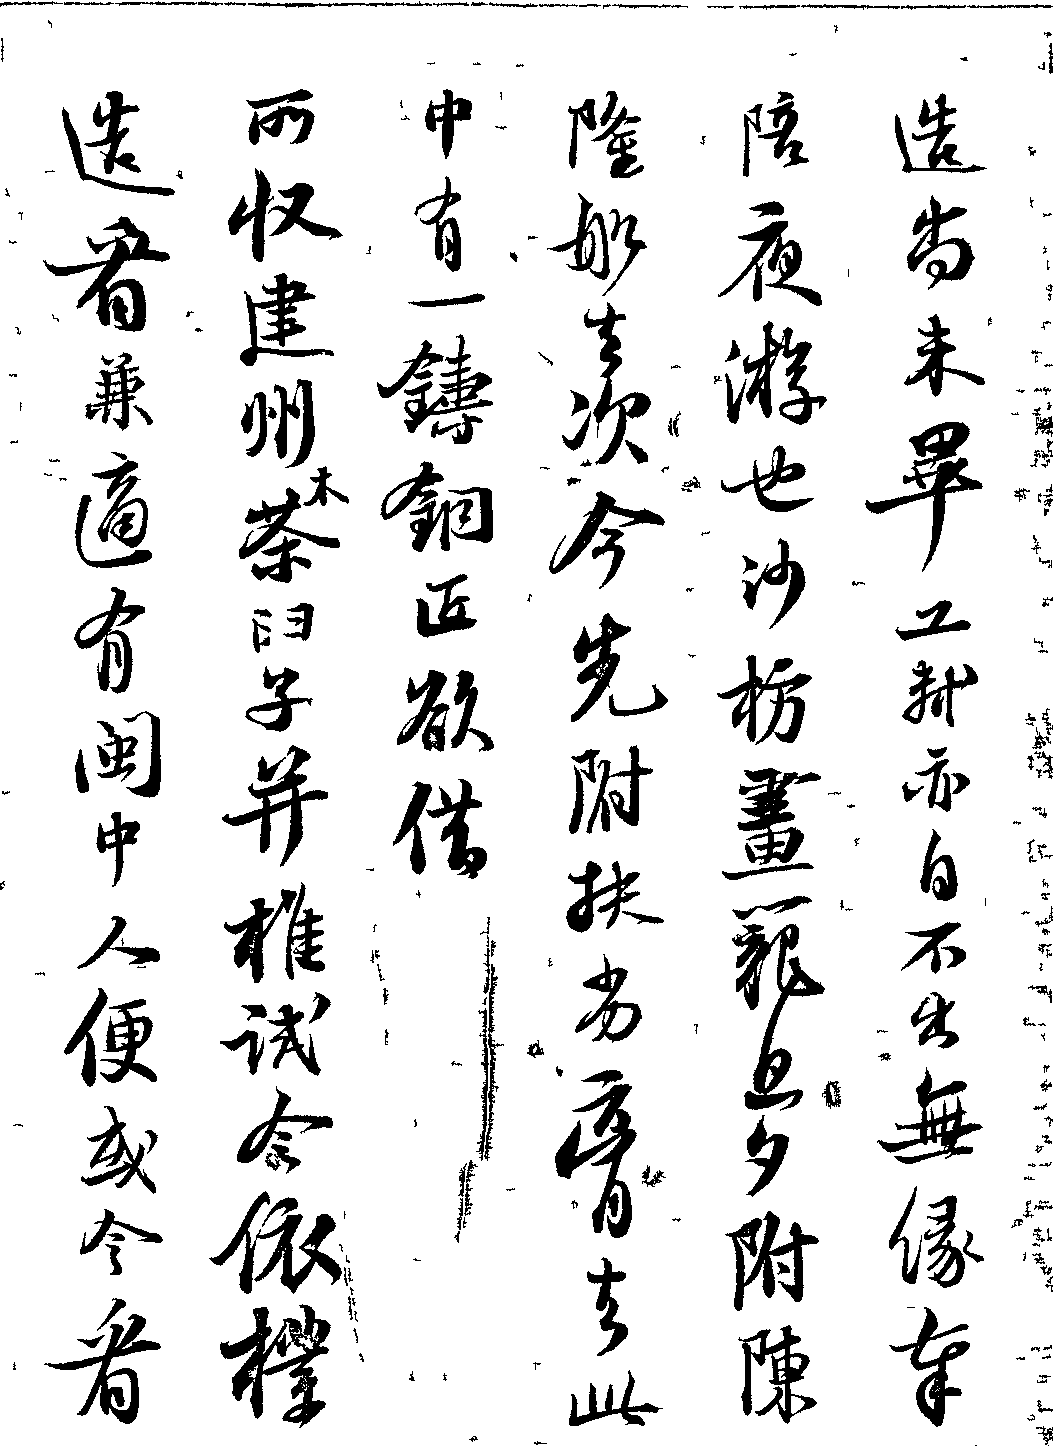 造尚未畢工軾亦自不出無緣奉
陪夜游也沙枋畫籠旦夕附陳
隆船去次今先附扶劣膏去此
中有一鑄銅匠欲借
所収建州木茶臼子并椎試令依樣
造看兼適有閩中人便或令看